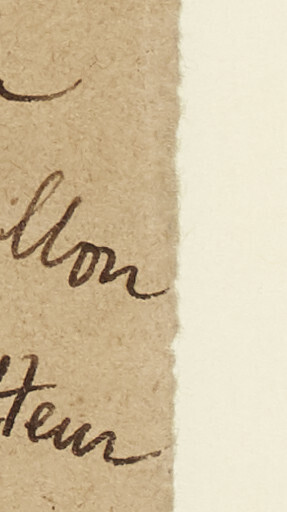 illon
tteur